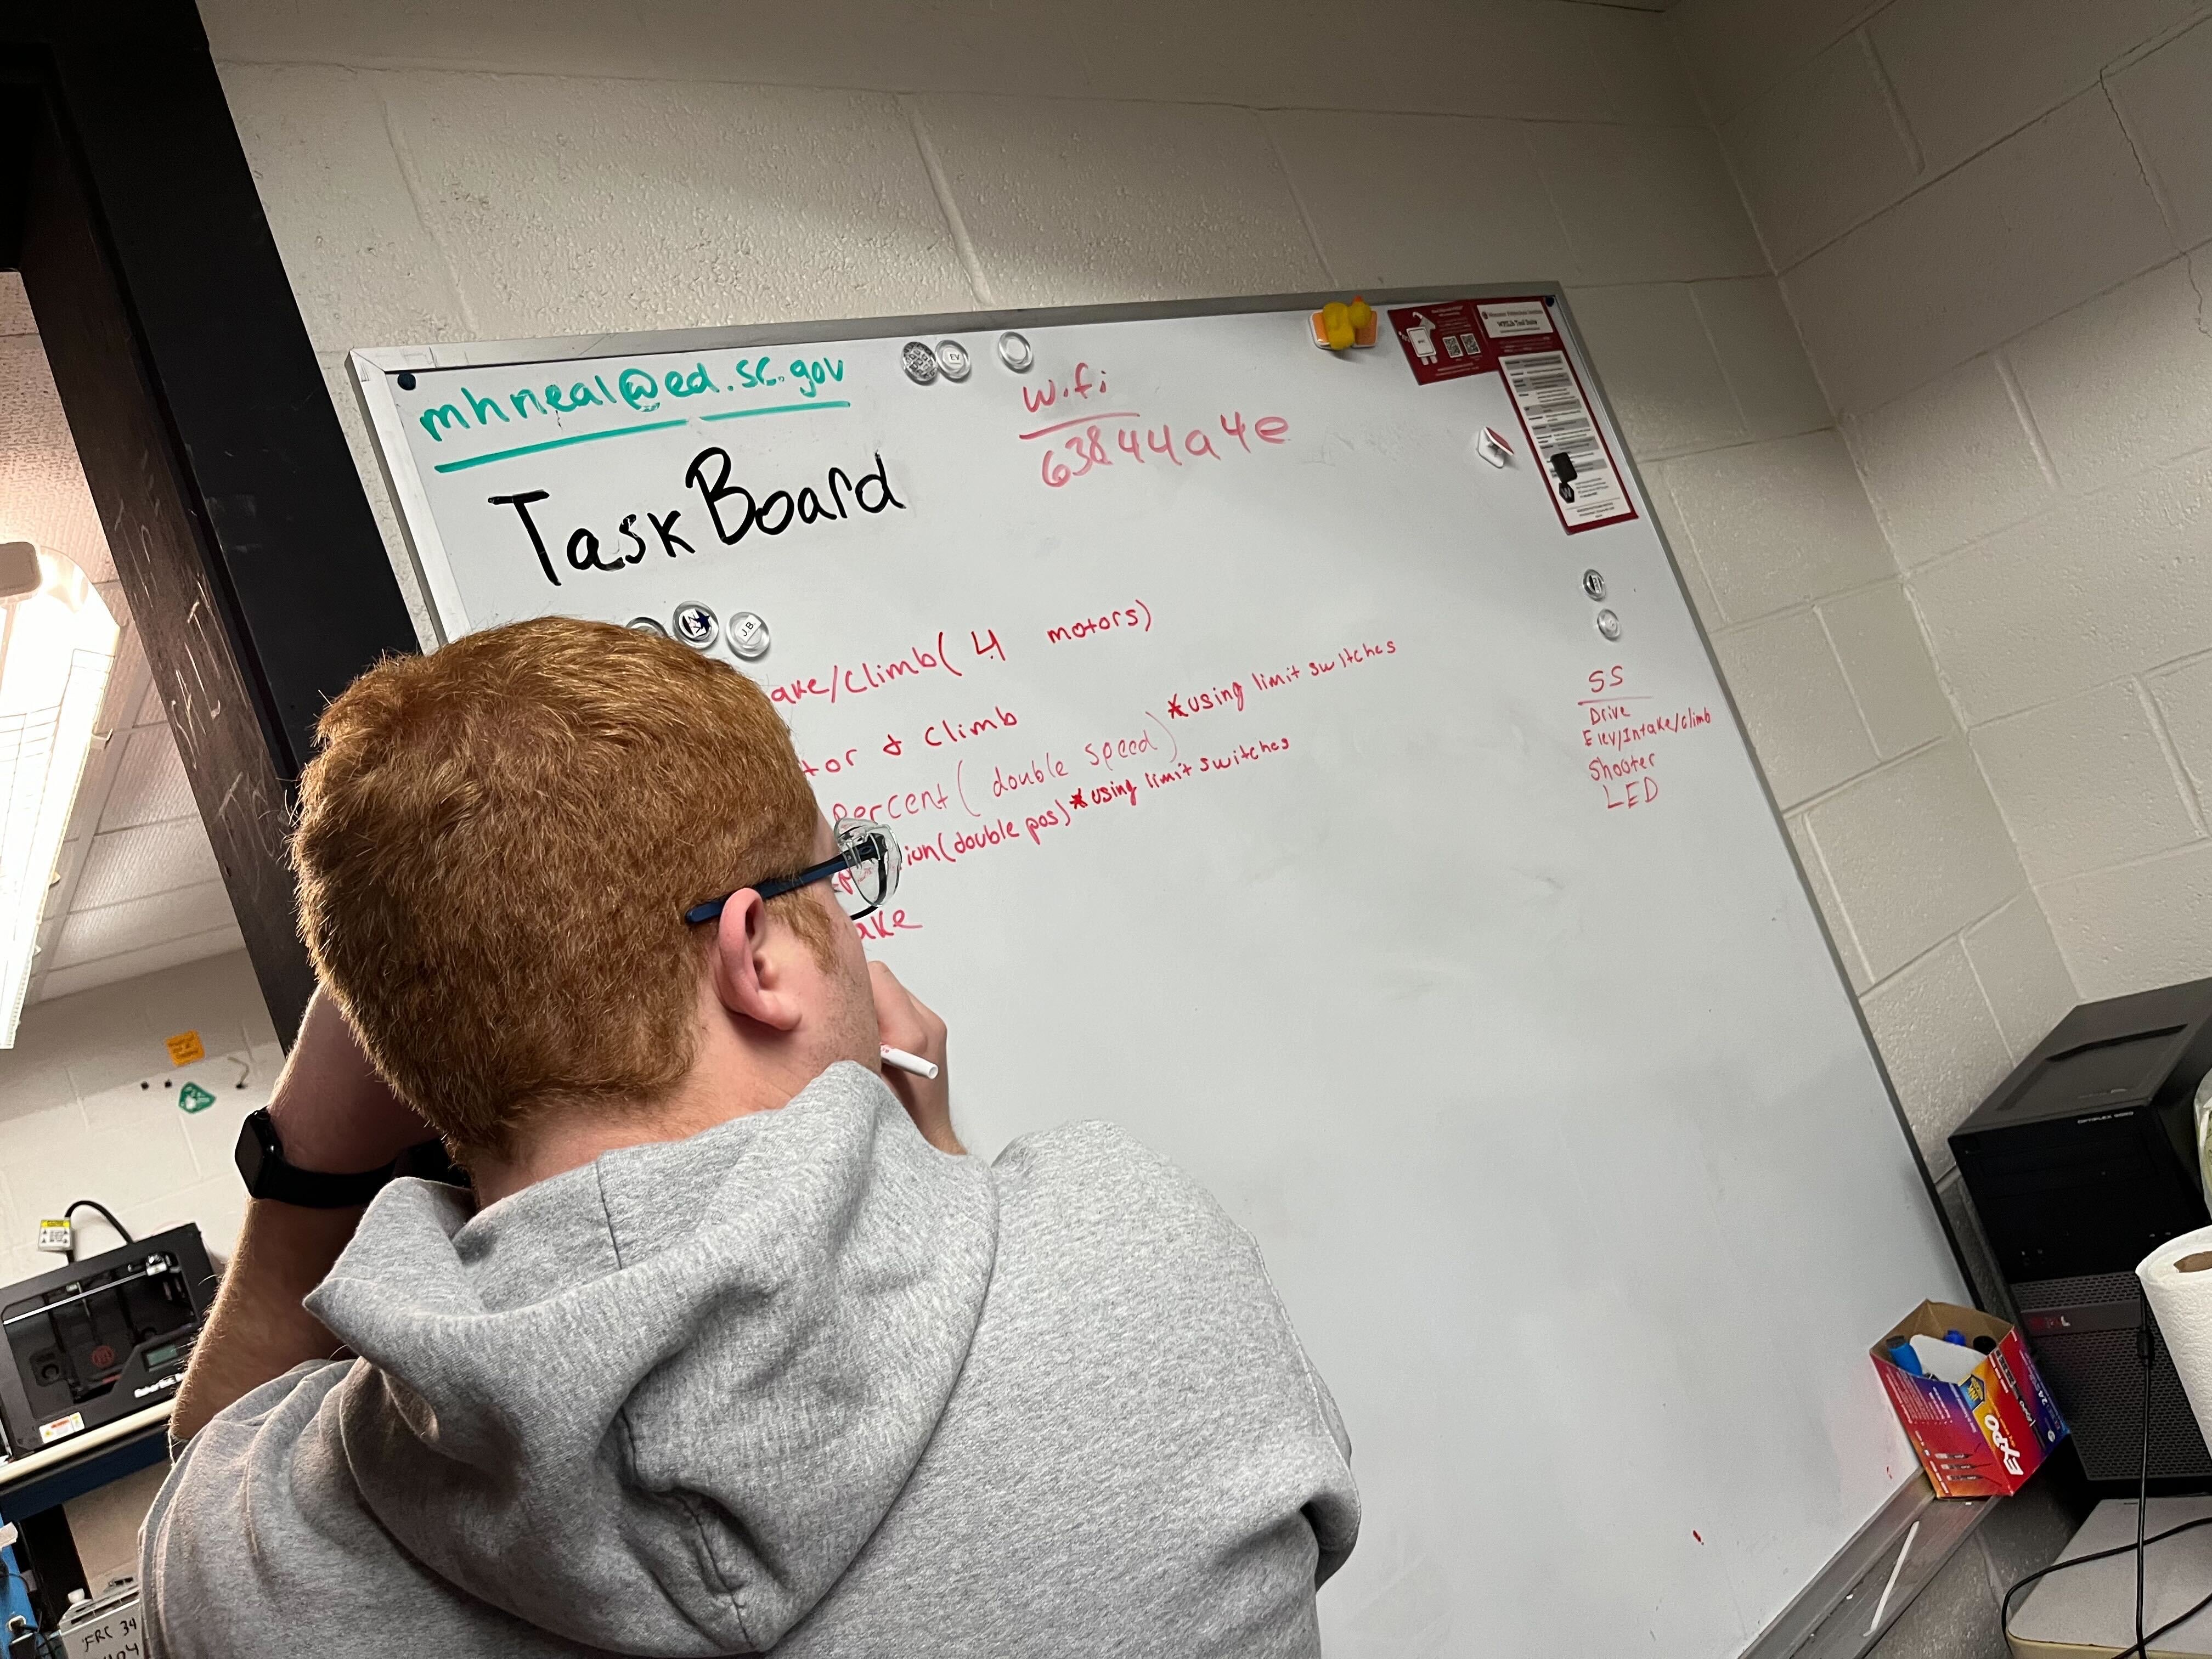 mhneal@ed.sc.gov
Wifi
63844a4e
Task Board
EV
J.B.
ake/Climb( 4 motors)
tor & Climb
Percent( double speed) *using limit switches
ion(double pos) *using limit switches
ake
SS
Drive
Elev/Intake/Climb
Shooter
LED
WPILib Tool Suite
OPTIPLEX
EXPO
FRC 34